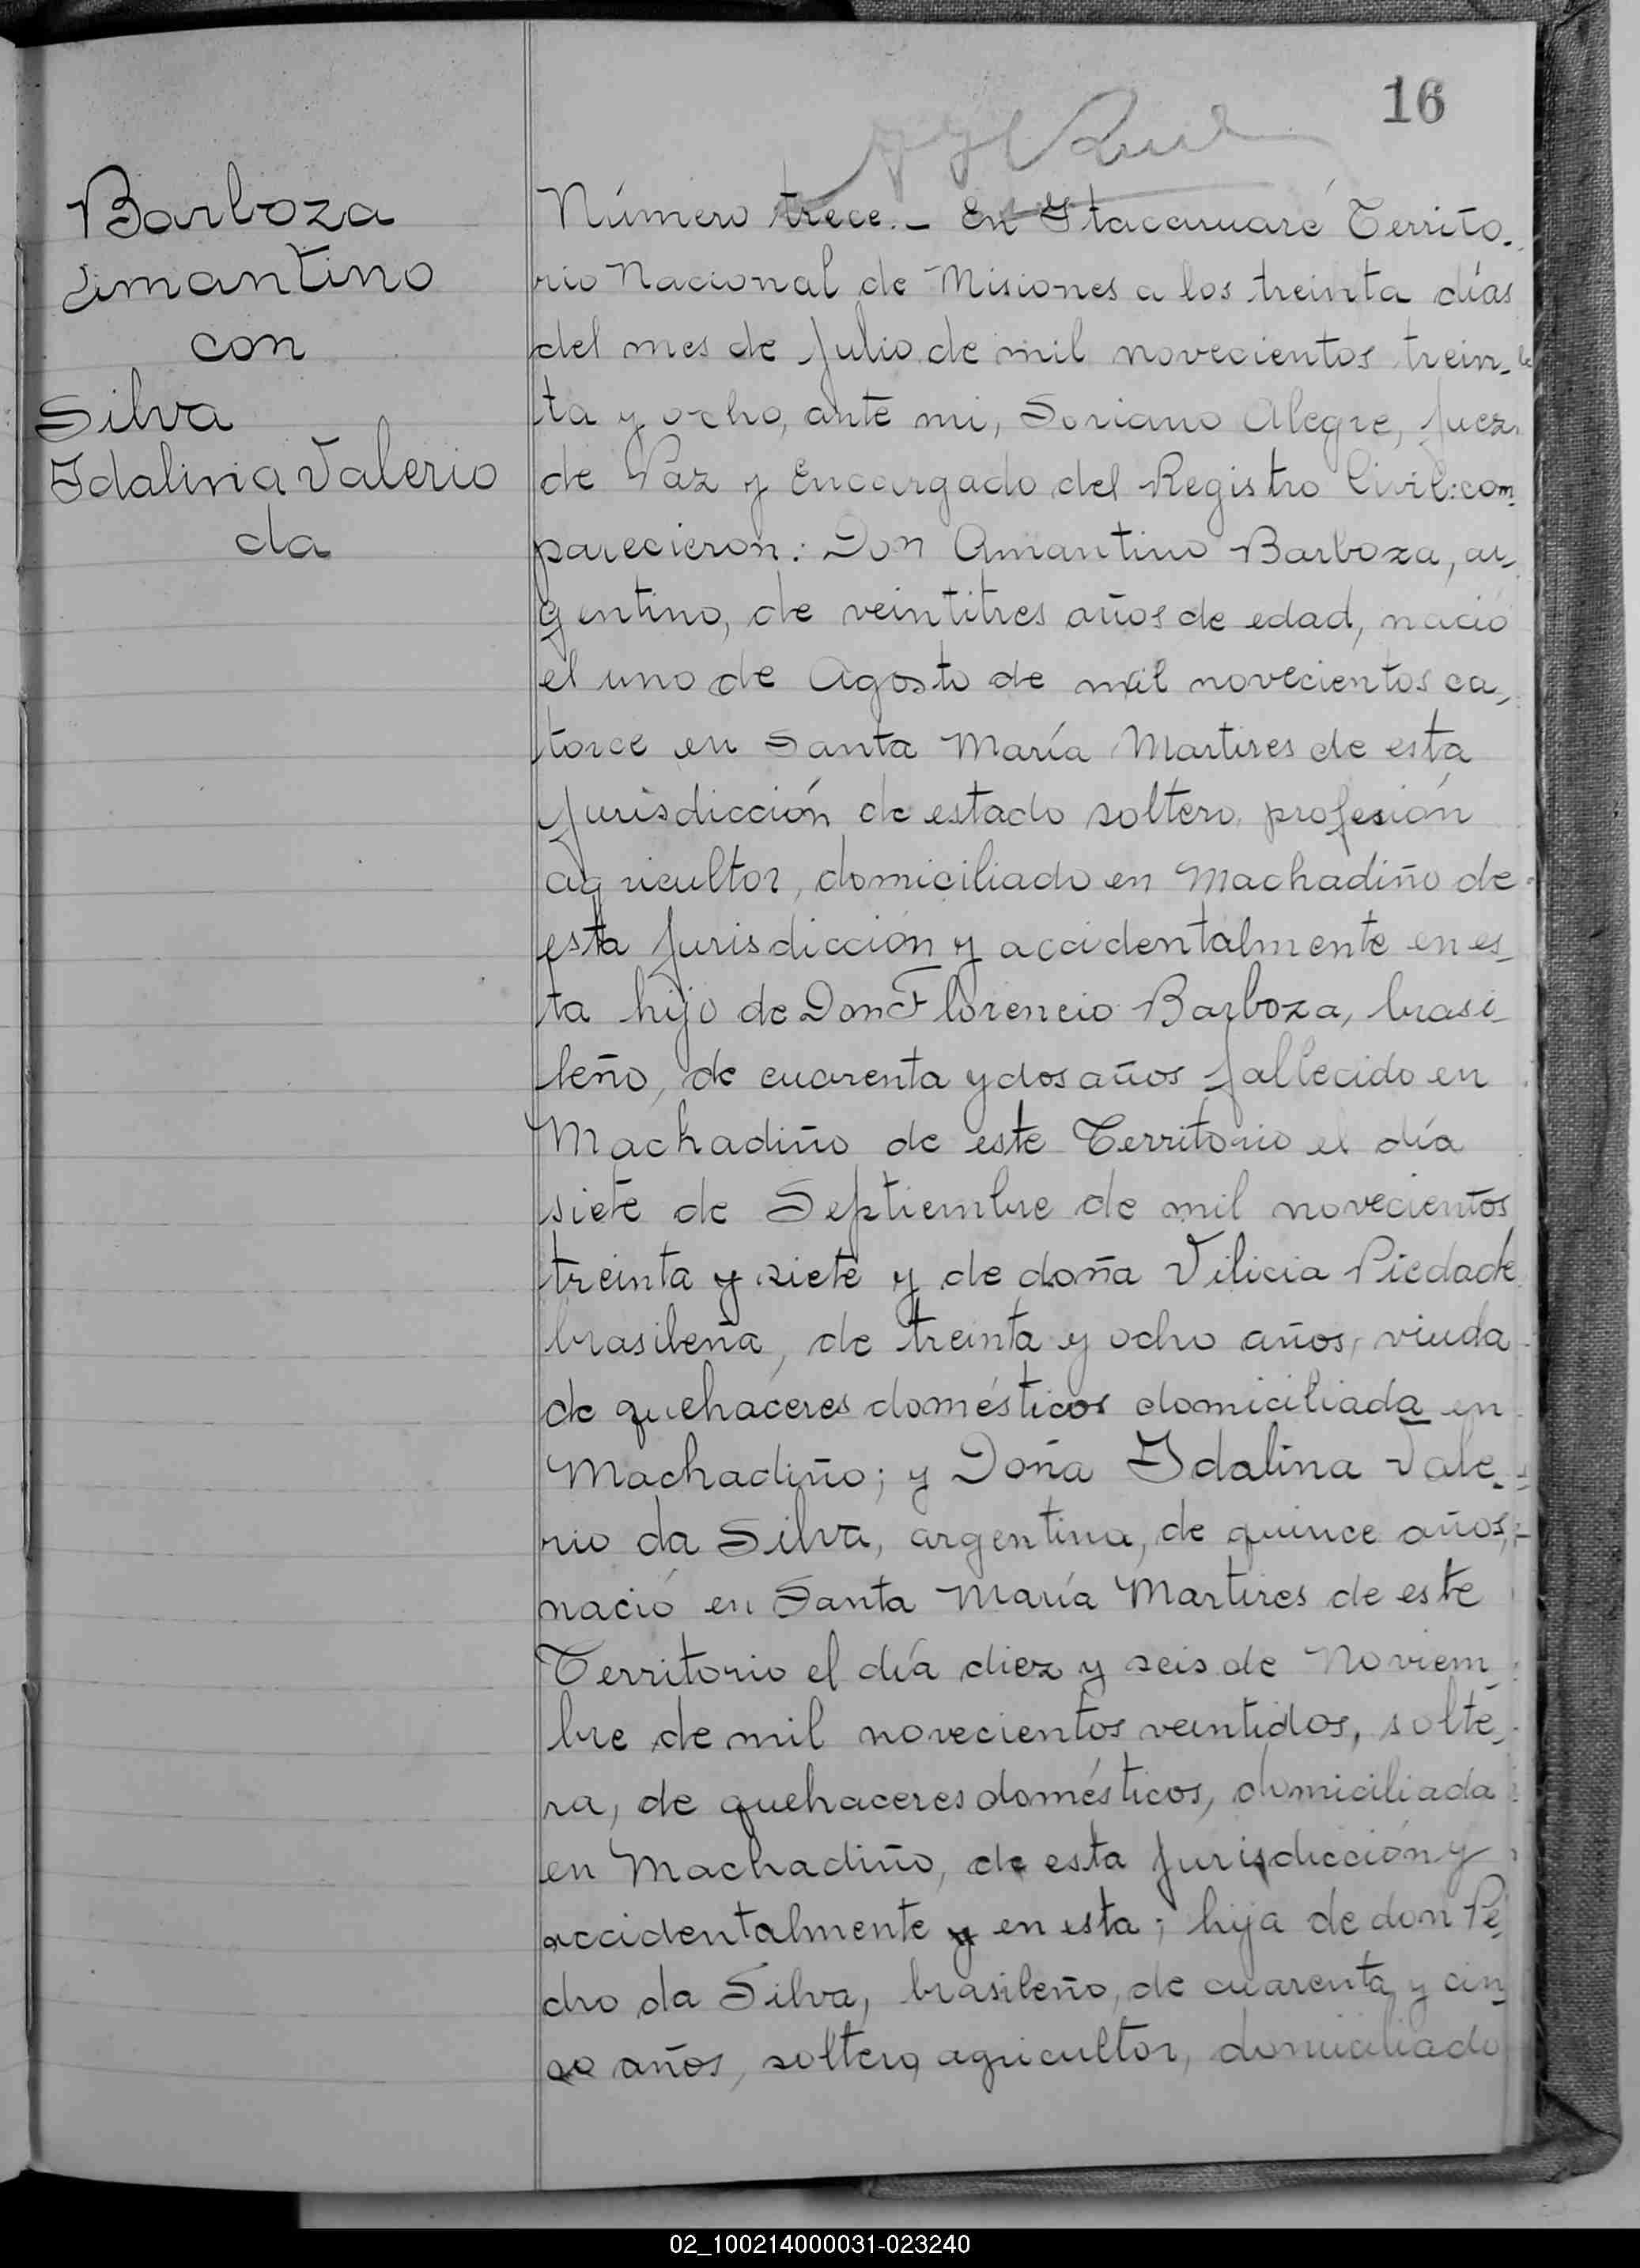 16
Barboza
Amantino
con
Silva
Idalina Valerio
da
Número trece.- En Itacaruaré Territo-
rio Nacional de Misiones a los treinta días
del mes de Julio de mil novecientos trein-
ta y ocho, ante mi, Soriano Alegre, Juez
de Paz y Encargado del Registro Civil: com-
parecieron: Don Amantino Barboza, ar-
gentino, de veintitres años de edad, nació
el uno de Agosto de mil novecientos ca-
torce en Santa María Martires de esta
Jurisdicción de estado soltero, profesión
agricultor, domiciliado en Machadiño de
esta Jurisdicción y accidentalmente en es-
ta hijo de Don Florencio Barboza, brasi-
leño, de cuarenta y dos años fallecido en
Machadiño de este Territorio el día
siete de Septiembre de mil novecientos
treinta y siete y de doña Vilicia Piedade
brasileña, de treinta y ocho años, viuda
de quehaceres domésticos domiciliada en
Machadiño; y Doña Idalina Vale-
rio da Silva, argentina, de quince años,
nació en Santa María Martires de este
Territorio el día diez y seis de Noviem-
bre de mil novecientos veintidos, solte-
ra, de quehaceres domésticos, domiciliada
en Machadiño, de esta Jurisdicción y
accidentalmente y en esta; hija de don Pe-
dro da Silva, brasileño, de cuarenta y cin-
co años, soltero, agricultor, domiciliado
02_100214000031-023240